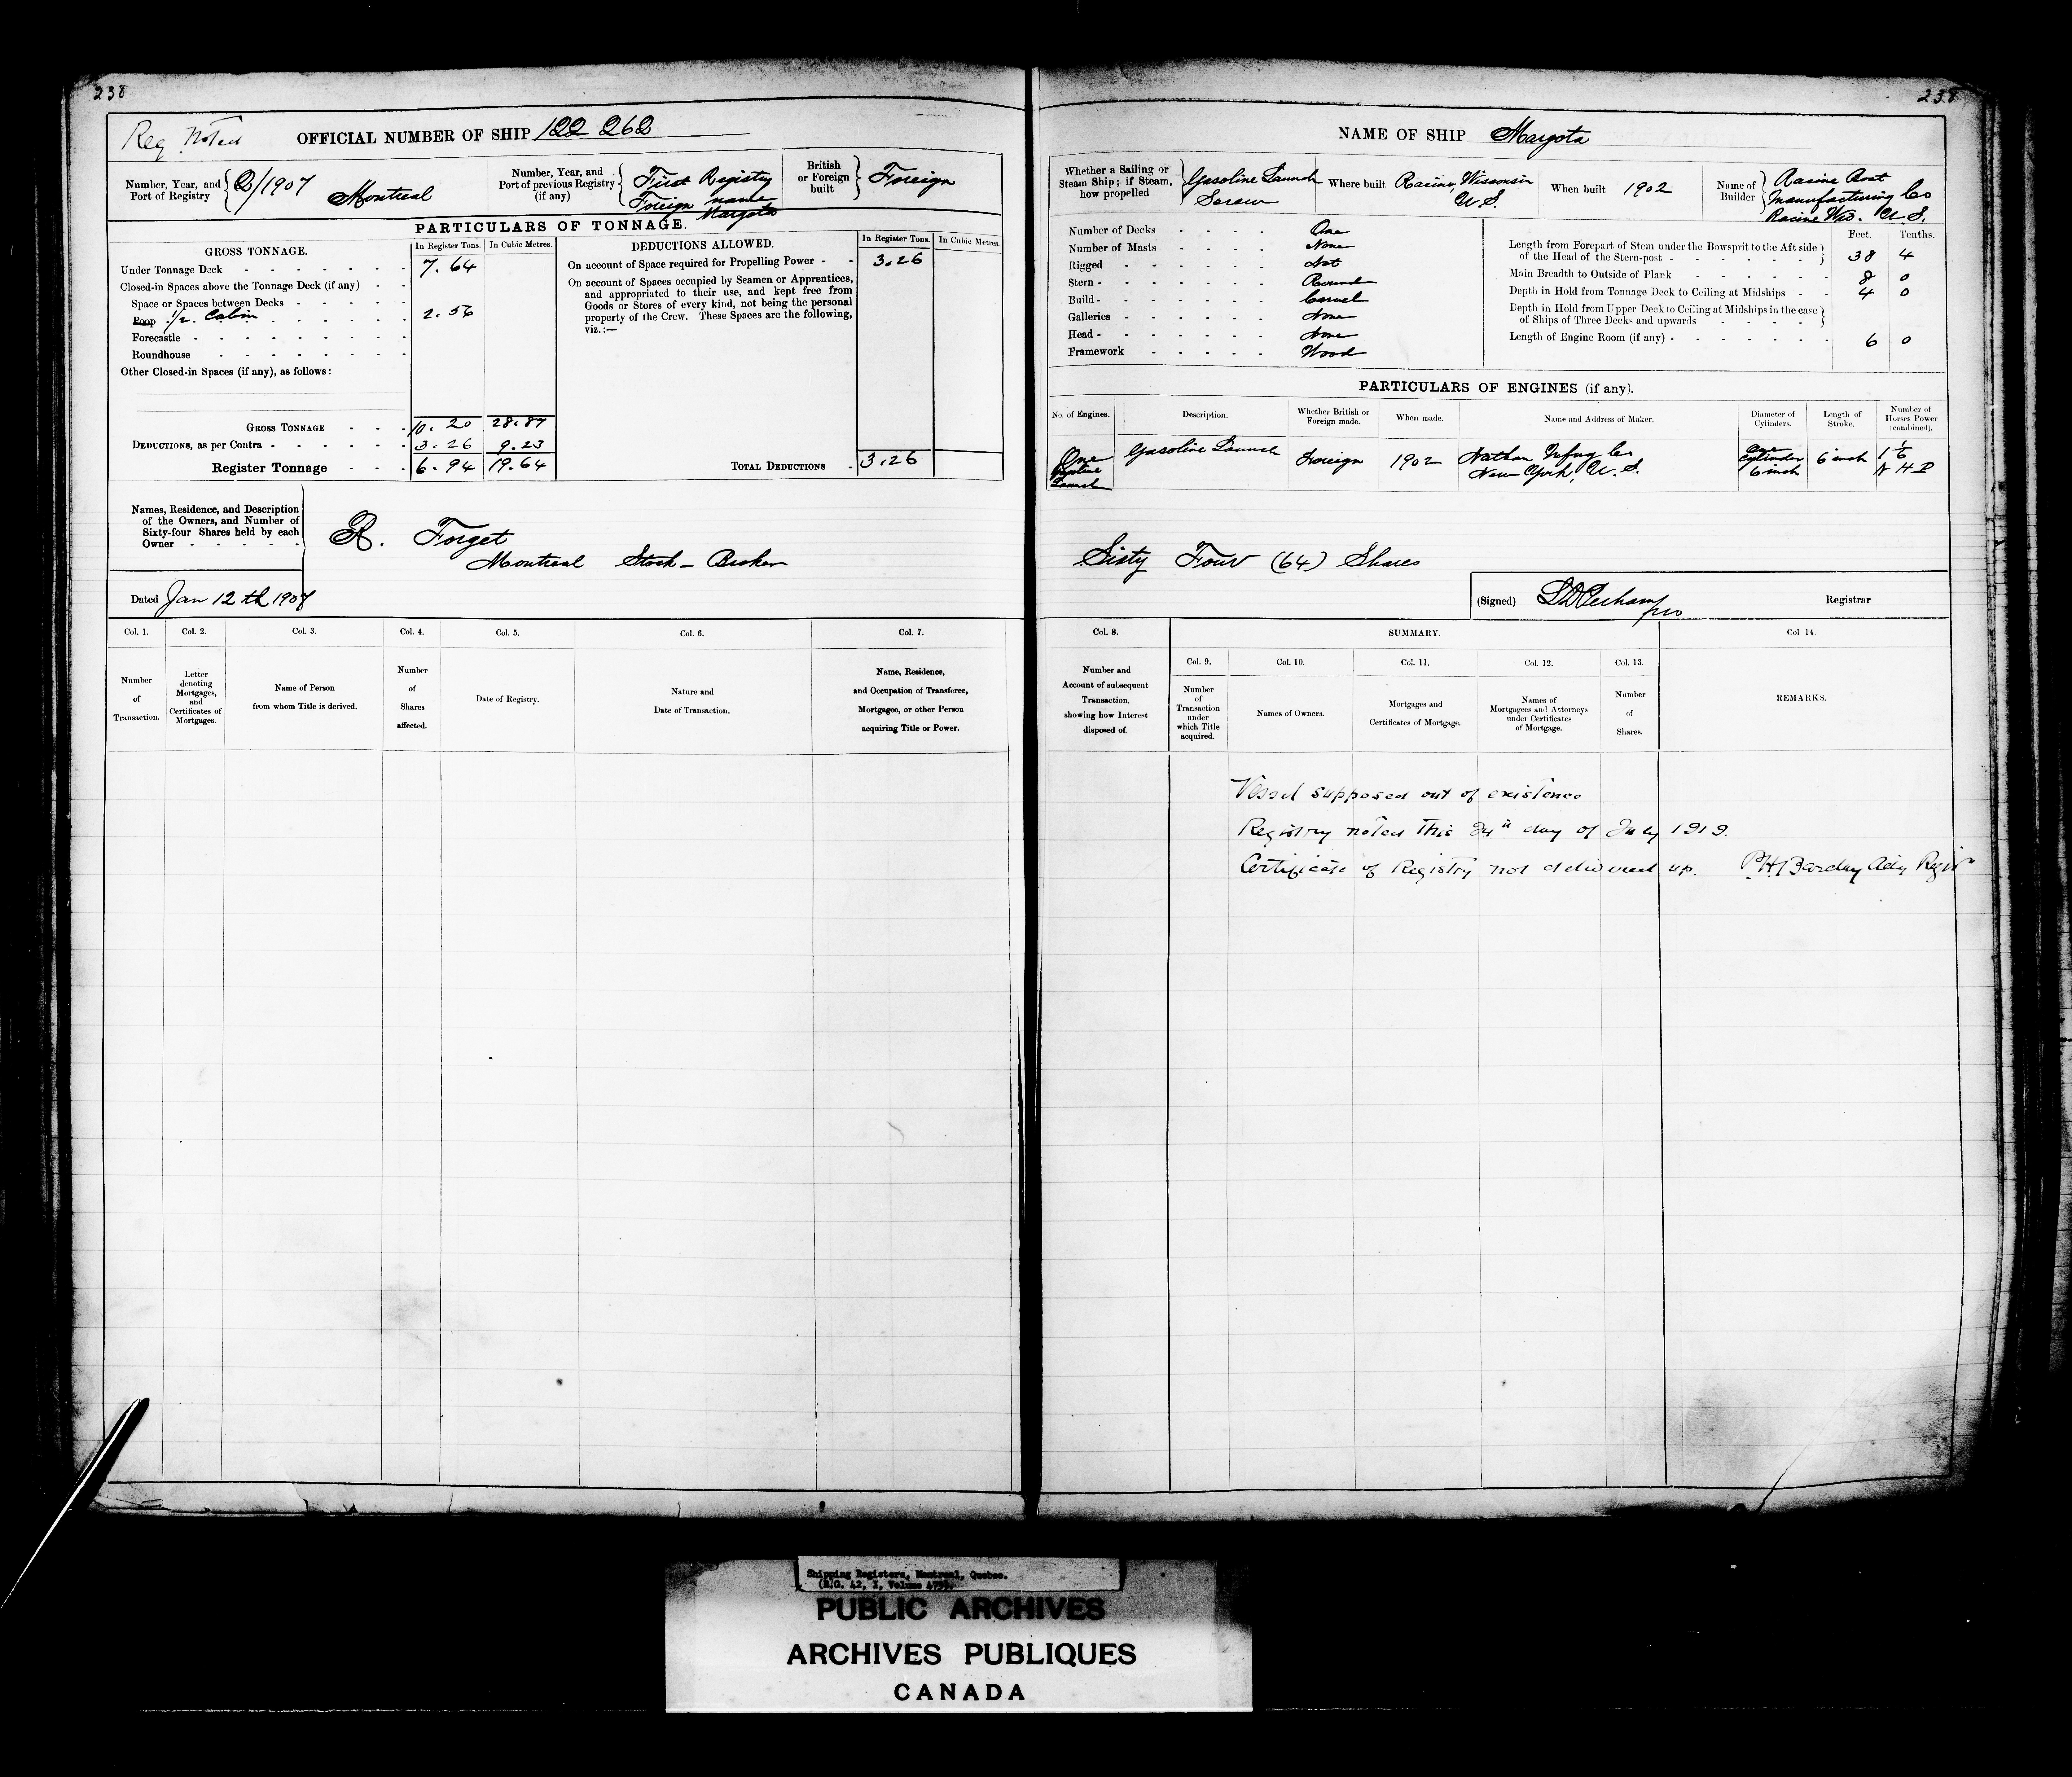 238
238
Reg Noted
OFFICIAL NUMBER OF SHIP 122 262
Number, Year, and Port of Registry 2/1907 Montreal
Number, Year, and Port of previous Registry (if any) First Registry Foreign name Margota
British or Foreign built Foreign
PARTICULARS OF TONNAGE.
GROSS TONNAGE. In Register Tons. In Cubic Metres.
Under Tonnage Deck 7.64
Closed-in Spaces above the Tonnage Deck (if any)
Space or Spaces between Decks
Poop 1/2 Cabin 2.56
Forecastle
Roundhouse
Other Closed-in Spaces (if any), as follows:
GROSS TONNAGE 10.20 28.87
DEDUCTIONS, as per Contra 3.26 9.23
Register Tonnage 6.94 19.64
DEDUCTIONS ALLOWED. In Register Tons. In Cubic Metres.
On account of Space required for Propelling Power 3.26
On account of Spaces occupied by Seamen or Apprentices,
and appropriated to their use, and kept free from
Goods or Stores of every kind, not being the personal
property of the Crew. These Spaces are the following,
viz.:—
TOTAL DEDUCTIONS 3.26
Names, Residence, and Description
of the Owners, and Number of
Sixty-four Shares held by each
Owner
R. Forget
Montreal Stock-Broker
Dated Jan 12th 1907
Col. 1. Col. 2. Col. 3. Col. 4. Col. 5. Col. 6. Col. 7.
Number of Transaction.
Letter denoting Mortgages, and Certificates of Mortgages.
Name of Person from whom Title is derived.
Number of Shares affected.
Date of Registry.
Nature and Date of Transaction.
Name, Residence, and Occupation of Transferee, Mortgagee, or other Person acquiring Title or Power.
NAME OF SHIP Margota
Whether a Sailing or Steam Ship; if Steam, how propelled Gasoline Launch Screw
Where built Racine, Wisconsin U.S.
When built 1902
Name of Builder Racine Boat Manufacturing Co Racine Wis. U.S.
Number of Decks One
Number of Masts None
Rigged Not
Stern Round
Build Carvel
Galleries None
Head None
Framework Wood
Feet. Tenths.
Length from Forepart of Stem under the Bowsprit to the Aft side
of the Head of the Stern-post 38 4
Main Breadth to Outside of Plank 8 0
Depth in Hold from Tonnage Deck to Ceiling at Midships 4 0
Depth in Hold from Upper Deck to Ceiling at Midships in the case
of Ships of Three Decks and upwards
Length of Engine Room (if any) 6 0
PARTICULARS OF ENGINES (if any).
No. of Engines. Description. Whether British or Foreign made. When made. Name and Address of Maker. Diameter of Cylinders. Length of Stroke. Number of Horses Power (combined).
One Gasoline Launch Gasoline Launch Foreign 1902 Nathan Co New York, U.S. Cylinder 6 inch 6 inch 1 1/6 N H P
Sixty Four (64) Shares
(Signed) Registrar
Col. 8. SUMMARY. Col 14.
Col. 9. Col. 10. Col. 11. Col. 12. Col. 13.
Number and Account of subsequent Transaction, showing how Interest disposed of.
Number of Transaction under which Title acquired.
Names of Owners.
Mortgages and Certificates of Mortgage.
Names of Mortgagees and Attorneys under Certificates of Mortgage.
Number of Shares.
REMARKS.
Vessel supposed out of existence
Registry noted this 24th day of July 1919.
Certificate of Registry not delivered up. P.H. Barclay Actg Regisr
Shipping Registers, Montreal, Quebec.
PUBLIC ARCHIVES
ARCHIVES PUBLIQUES
CANADA